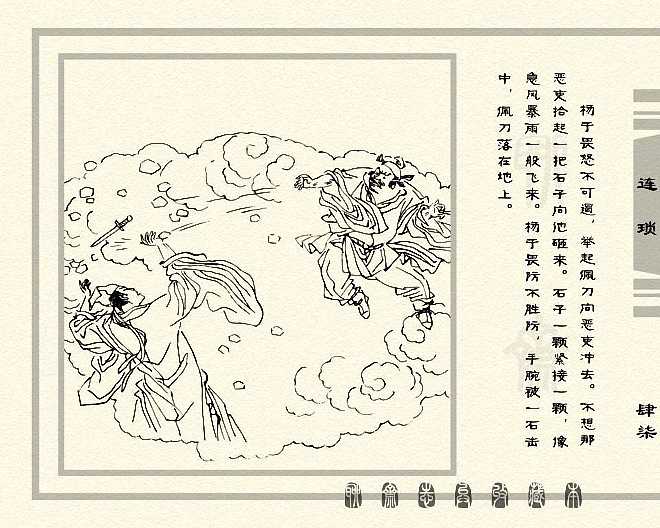 杨于畏怒不可遏，举起佩刀向恶吏冲去。不想那
恶吏拾起一把石子向他砸来。石子一颗紧接一颗，像
急风暴雨一般飞来。杨于畏防不胜防，手腕被一石击
中，佩刀落在地上。
连琐
肆柒